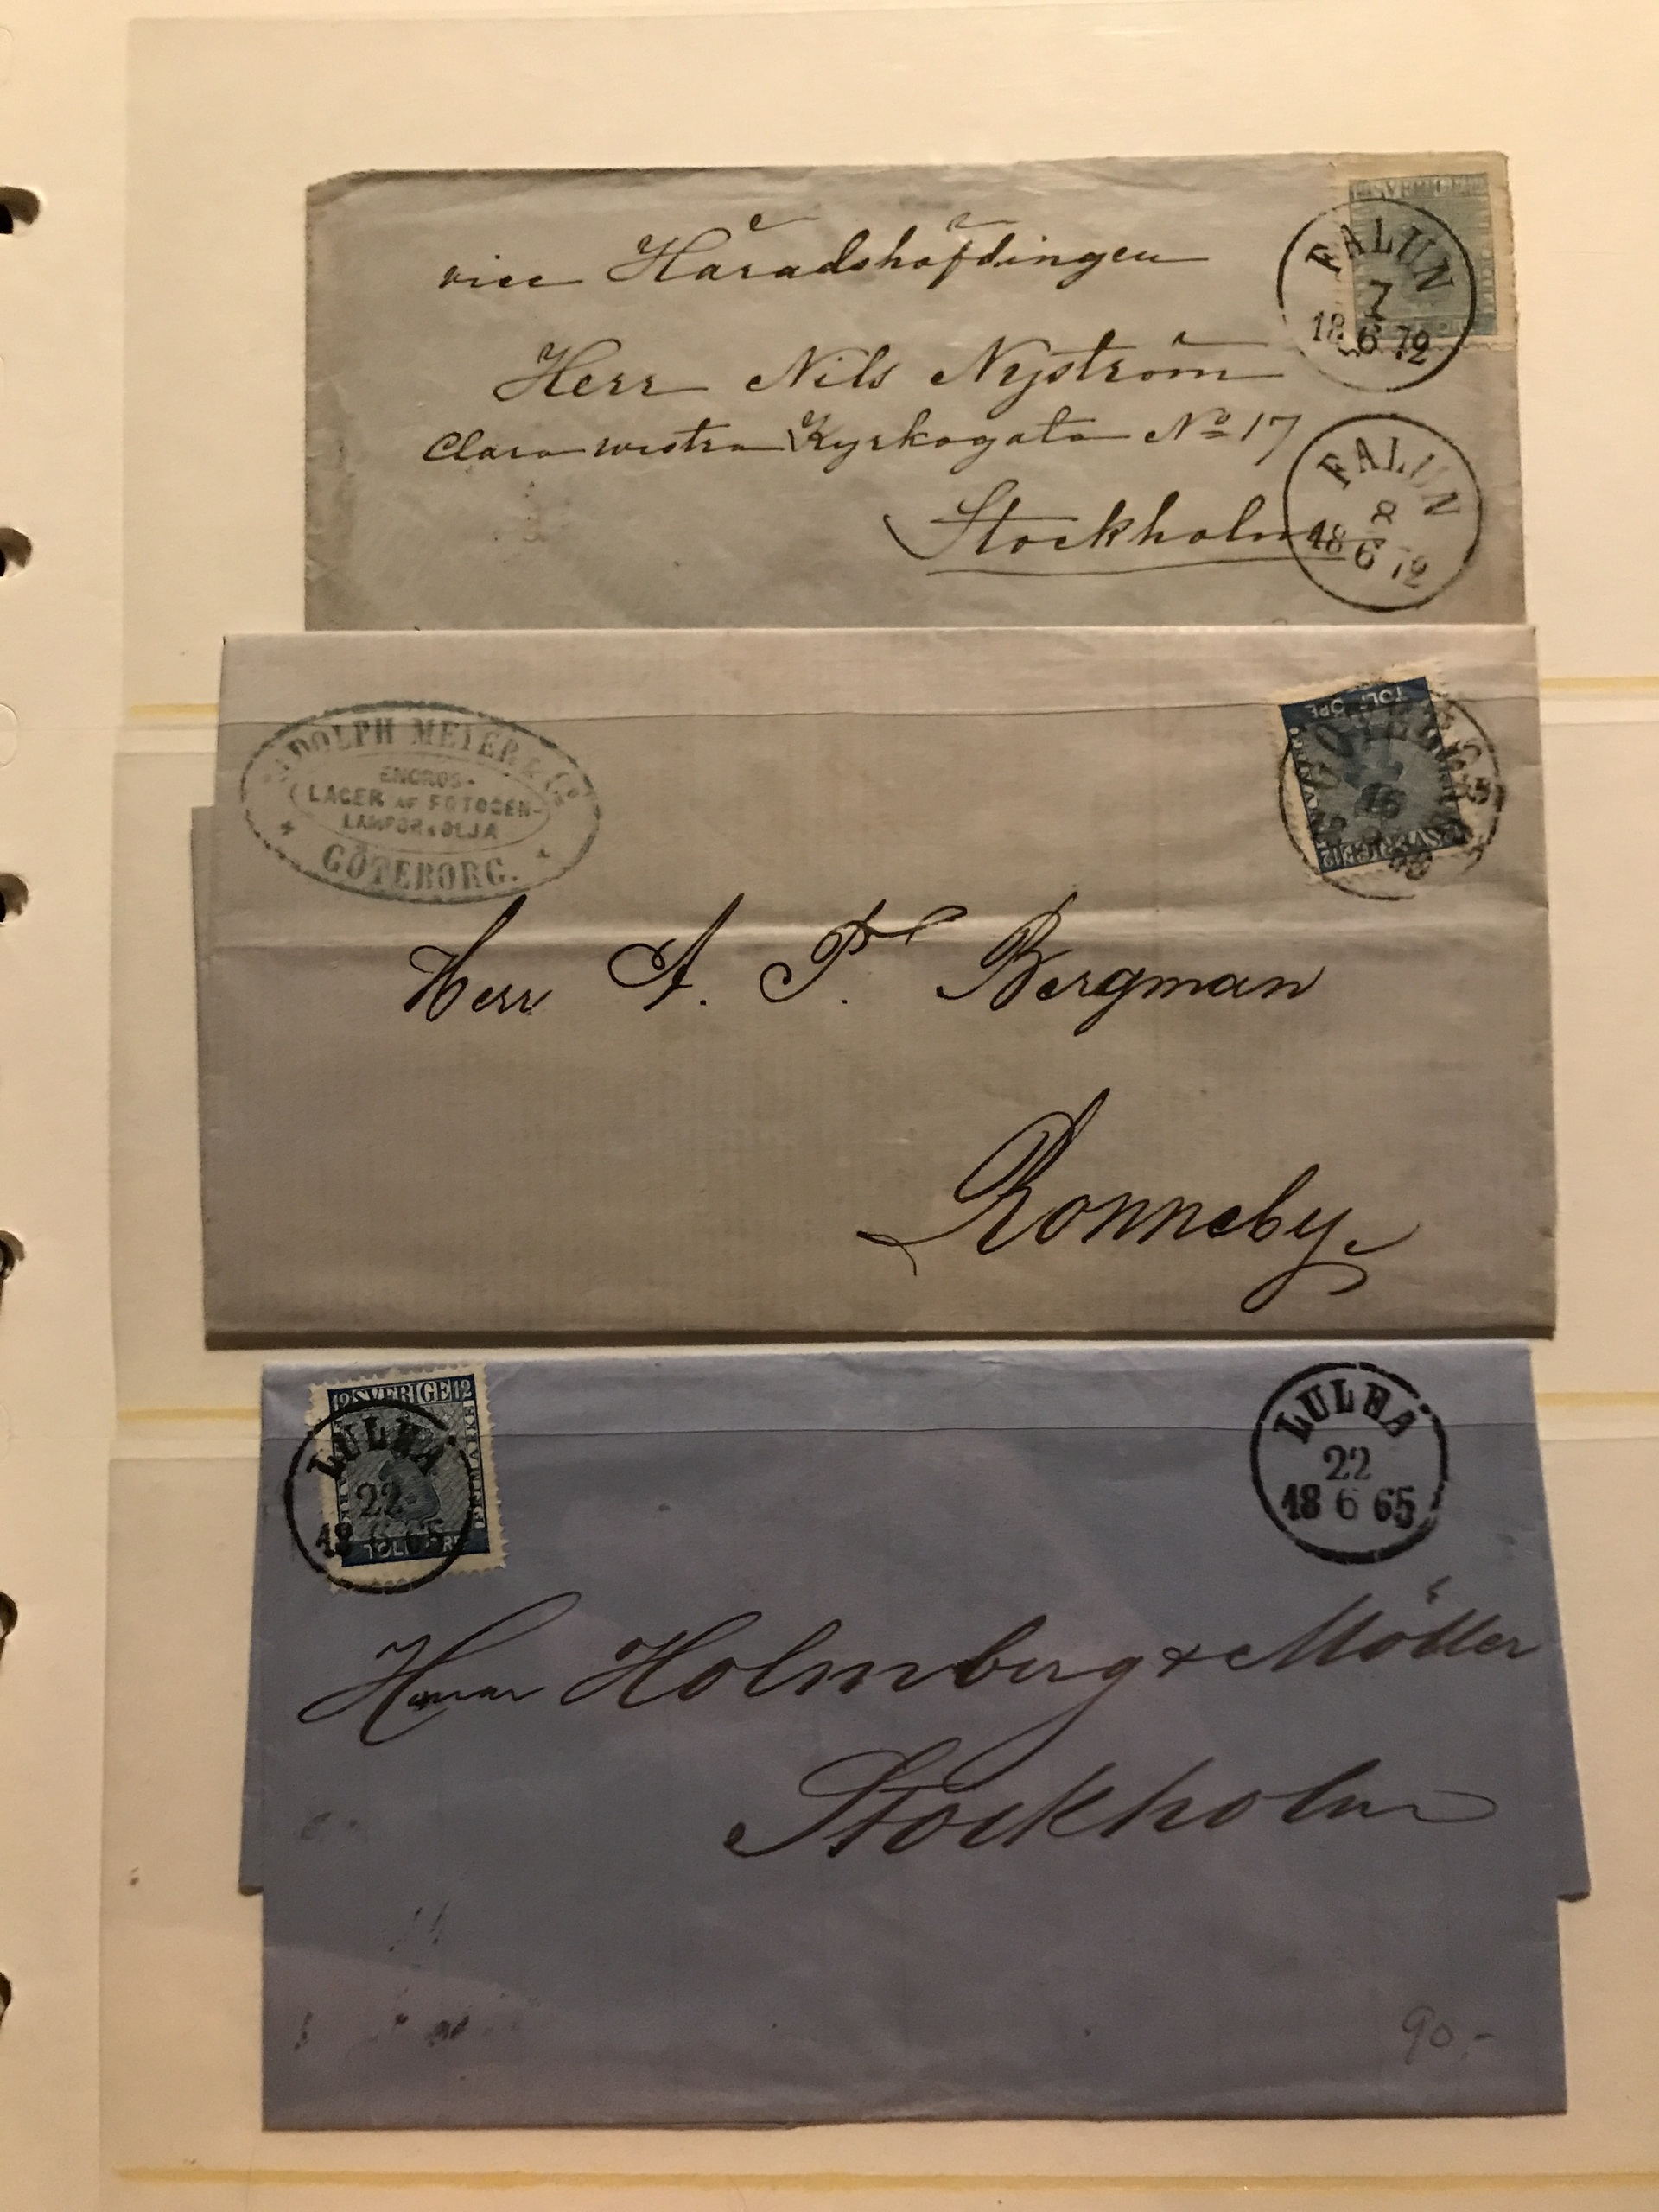 vice Häradshöfdingen
Herr Nils Nyström
Clara westra Kyrkogata No 17
Stockholm
SVERIGE
FALUN
7
18 6 72
FALUN
8
18 6 72
ADOLPH MEYER & Co
ENGROS-
LAGER AF FOTOGEN-
LAMPOR & OLJA
GÖTEBORG.
TOLF ÖRE
SVERIGE 12
16
Herr A. P. Bergman
Ronneby
12 SVERIGE 12
FRIMÄRKE
TOLF ÖRE
LULEÅ
22
18 6 65
LULEÅ
22
18 6 65
Herrar Holmberg & Möller
Stockholm
90.-